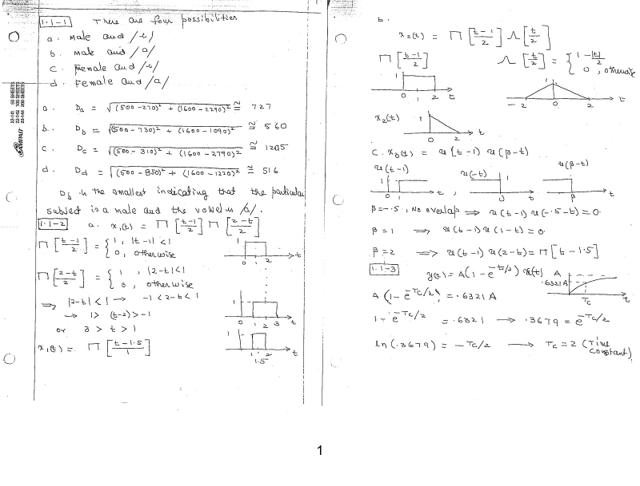 1.1-1 There are four possibilities
a. Male and /i/
b. Male and /a/
c. Female and /i/
d. Female and /a/
a. Da = √(500-270)² + (1600-2290)² ≅ 727
b. Db = √(500-730)² + (1600-1090)² ≅ 560
c. Dc = √(500-310)² + (1600-2790)² ≅ 1205
d. Dd = √(500-850)² + (1600-1220)² ≅ 516
is the smallest indicating that the particular
subject is a male and the vowel is /a/.
1.1-2 a. x₁(t) = Π [t-1/2] Π [2-t/2]
Π [t-1/2] = { 1, |t-1|<1
0, otherwise
Π [2-t/2] = { 1, |2-t|<1
0, otherwise
⇒ |2-t|<1 → -1<2-t<1
→ 1 > (t-2) > -1
or 3 > t > 1
x₁(t) = Π [t-1.5/1]
1.5
b.
x₂(t) = Π [t-1/2] Λ [t/2]
Π [t-1/2] Λ [t/2] = { 1-|t|/2
0, otherwise
x₂(t)
c. x₃(t) = u(t-1) u(β-t)
u(t-1) u(-t) u(β-t)
β = -.5, No overlap ⇒ u(t-1) u(-.5-t) = 0
β = 1 ⇒ u(t-1) u(1-t) = 0
β = 2 ⇒ u(t-1) u(2-t) = Π [t-1.5]
1.1-3 y(t) = A(1-e^-t/2) u(t) A
.6321A
A(1-e^-Tc/2) = .6321A
Tc
1-e^-Tc/2 = .6321 → .3679 = e^-Tc/2
ln(.3679) = -Tc/2 → Tc = 2 (Time
constant)
1